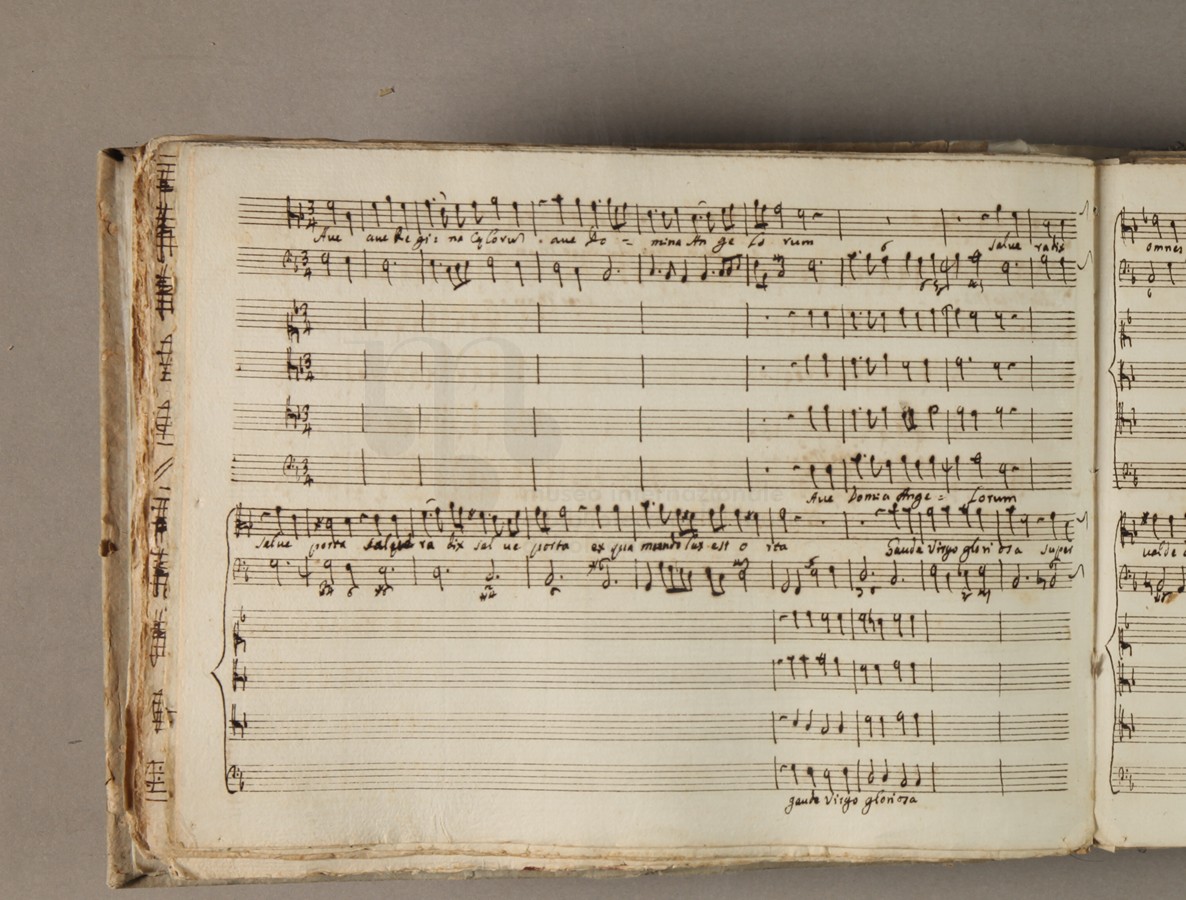 Ave ave Regi: na Cęlorum. ave Do = mina An ge lo rum
salve radix
museo internazionale
Ave Domina Ange = lorum
salve porta salve ra dix sal ve porta ex qua mundo lux est o rta
Gaude Virgo glori osa super
gaude Virgo gloriosa
omnes
valde